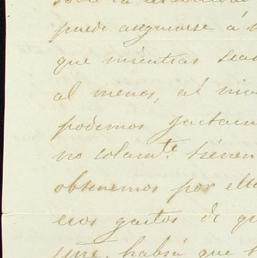 puede asegurarse á
que mientras sea
al menos, al niv
podemos jactarn
no solamte. tienen
obtenemos por ello
esos gastos de qu
habrá que